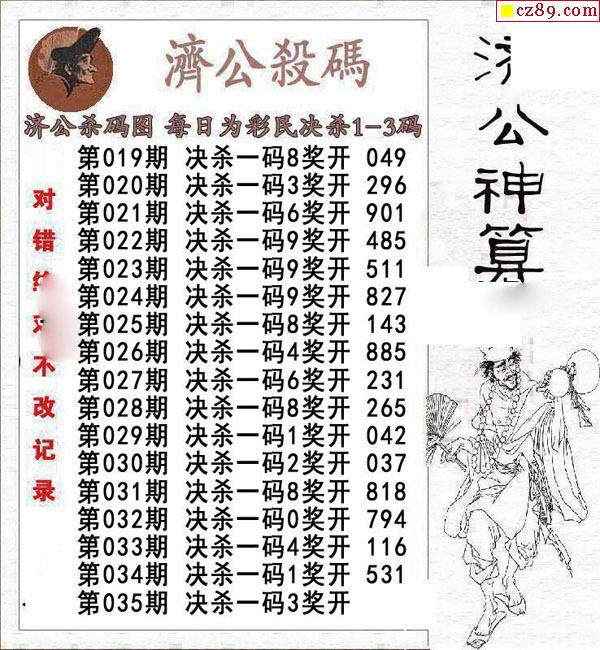 cz89.com
濟公殺碼
济公杀码图 每日为彩民决杀1-3码
第019期 决杀一码8奖开 049
第020期 决杀一码3奖开 296
第021期 决杀一码6奖开 901
第022期 决杀一码9奖开 485
第023期 决杀一码9奖开 511
第024期 决杀一码9奖开 827
第025期 决杀一码8奖开 143
第026期 决杀一码4奖开 885
第027期 决杀一码6奖开 231
第028期 决杀一码8奖开 265
第029期 决杀一码1奖开 042
第030期 决杀一码2奖开 037
第031期 决杀一码8奖开 818
第032期 决杀一码0奖开 794
第033期 决杀一码4奖开 116
第034期 决杀一码1奖开 531
第035期 决杀一码3奖开
对错不改记录
济公神算